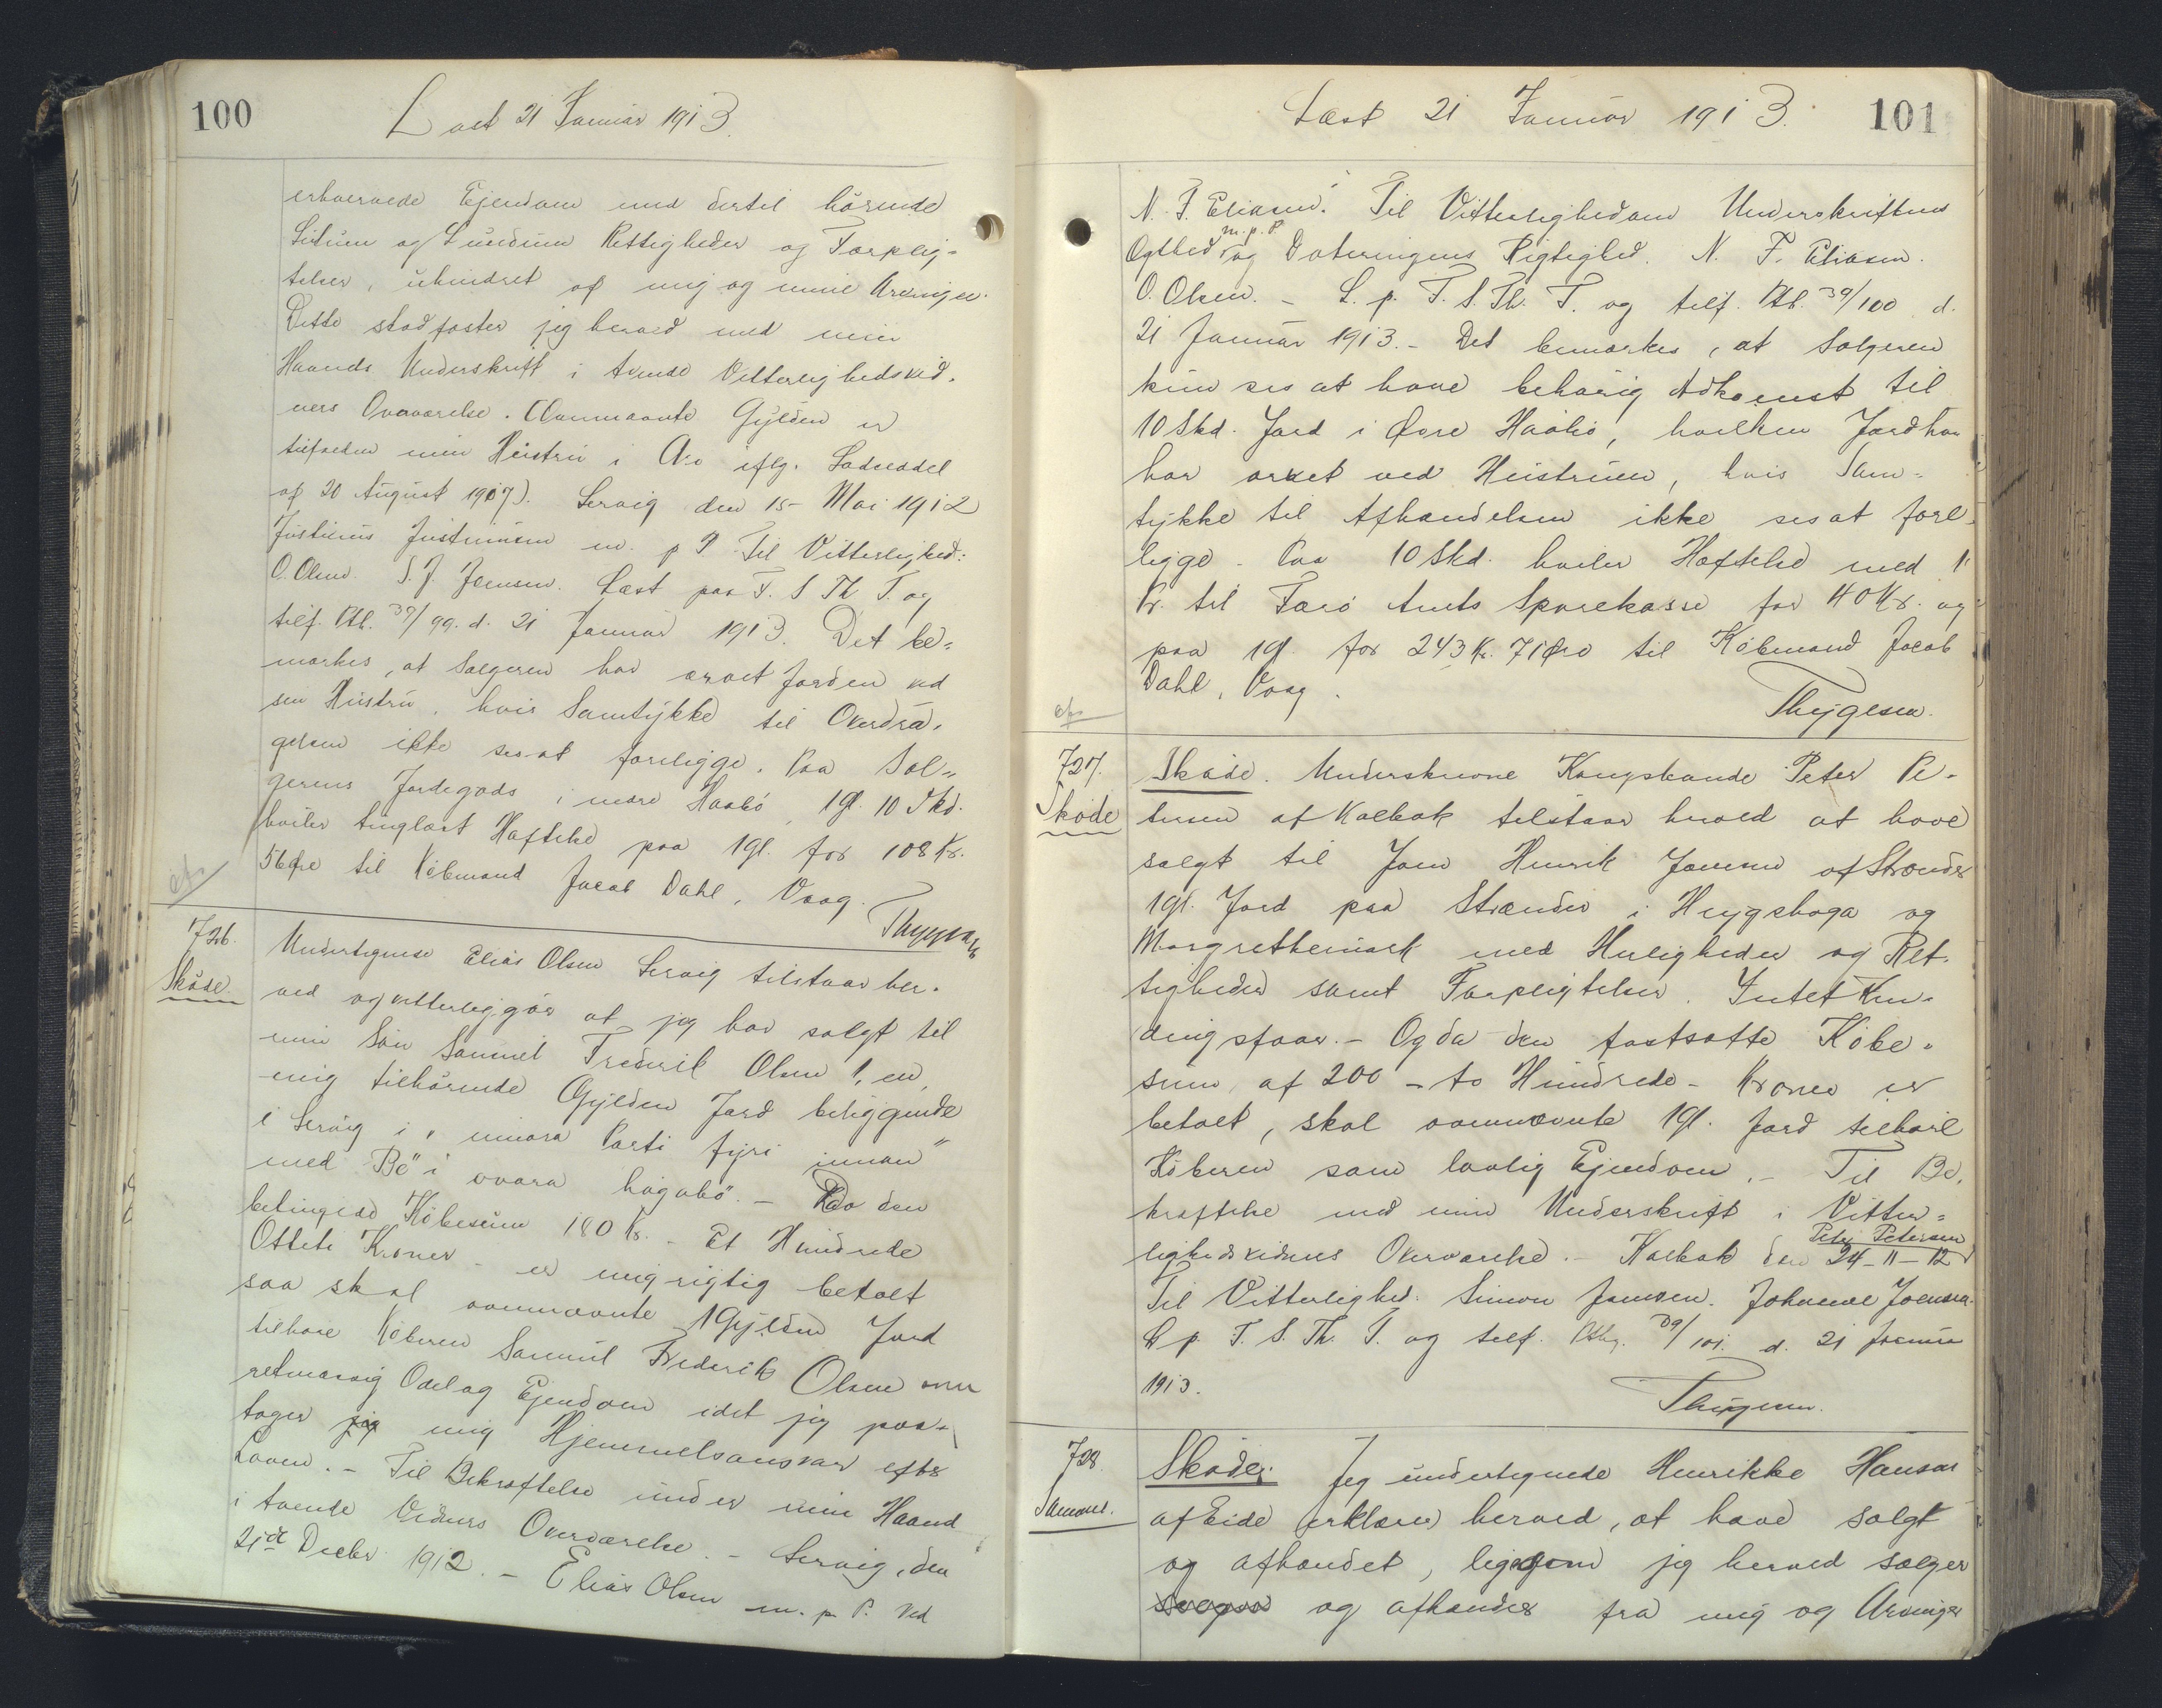 100
Læst 21 Januar 1913.
erhvervede Ejendom med dertil hörende
Litum og Lundum Rettigheder og Forplig-
telser, uhindret af mig og mine Arvinger.
Dette stadfæster jeg herved med min
Haands Underskrift i tvende Vitterlighedsvid-
ners Overværelse. (Ovennævnte Gylden er
tilfalden min Hustru i Arv iflg. Lodseddel
af 20 August 1907). Servig den 15 - Mai 1912
Justinus Justinusen m. p. P. Til Vitterlighed:
O. Olsen. S. J. Joensen. Læst paa F. S. Th. T. og
tilf. Ptb. 39/99. d. 21 Januar 1913. Det be-
mærkes, at Sælgeren har arvet Jorden ved
sin Hustru, hvis Samtykke til Overdra-
gelsen ikke ses at foreligge. Paa Sæl-
gerens Jordegods i indre Haabö, 1 gl. 10 Skd.
hviler tinglæst Hæftelse paa 1 gl. for 108 Kr.
56 Øre til Köbmand Jacob Dahl, Vaag.
Thygesen
726.
Sköde.
Undertegnede Elias Olsen Servig tilstaar her-
ved og vitterliggör at jeg har solgt til
min Sön Samuel Frederik Olsen 1, en,
mig tilhörende Gylden Jord beliggende
i Servig i "innara Parti fyri innan"
med Bö "i ovara hágabö". - Da den
betingede Köbesum 180 Kr. - Et Hundrede
Otteti Kroner - er mig rigtig betalt
saa skal ovennævnte 1 Gylden Jord
tilhøre Köberen Samuel Frederik Olsen som
retmæssig Odel og Ejendom idet jeg paa-
tager jeg mig Hjemmelsansvar efter
Loven. - Til Bekræftelse under min Haand
i tvende Vidners Overværelse. - Servig, den
21de Decbr 1912. - Elias Olsen m. p. P. Ved
Læst 21 Januar 1913.
101
N. F. Eliasen. Til Vitterlighed om Underskriftens
m. p. P.
Ægthed og Dateringens Rigtighed. N. F. Eliasen.
O. Olsen. - L. p. F. S. Th. T. og tilf. Ptb. 39/100 d.
21 Januar 1913. - Det bemærkes, at Sælgeren
kun ses at have behørig Adkomst til
10 Skd. Jord i Øvre Haabö, hvilken Jord han
har arvet ved Hustruen, hvis Sam-
tykke til Afhændelsen ikke ses at fore-
ligge. Paa 10 Skd. hviler Hæftelse med 1
Pr. til Færø Amts Sparekasse for 40 Kr. og
paa 1 gl. for 243 Kr. 71 Øre til Köbmand Jacob
Dahl, Vaag.
Thygesen.
727.
Sköde
Sköde. Underskrevne Kongsbonde Peter Pe-
tersen af Kalbak tilstaar herved at have
solgt til Joen Henrik Joensen af Strænder
1 gl. Jord paa Strænder i Heygshaga og
Margrethemark med Herligheder og Ret-
tigheder samt Forpligtelser. Intet Kun-
dingsfaar. - Og da den fastsatte Köbe-
sum af 200 - to Hundrede - Kroner er
betalt, skal ovennævnte 1 gl. Jord tilhøre
Köberen som lovlig Ejendom. - Til Be-
kræftelse med min Underskrift i Vitter-
Peter Petersen
lighedsvidners Overværelse. - Kalbak den 24-11-12
Til Vitterlighed. Simon Joensen. Johanne Joensen.
L. p. F. S. Th. T. og tilf. Ptb. 39/101. d. 21 Januar
1913.
Thygesen.
728.
Skøde. Jeg undertegnede Henrikke Hansen
af Eide erklærer herved, at have solgt
og afhændet, ligesom jeg herved sælger
og afhænder fra mig og Arvinger